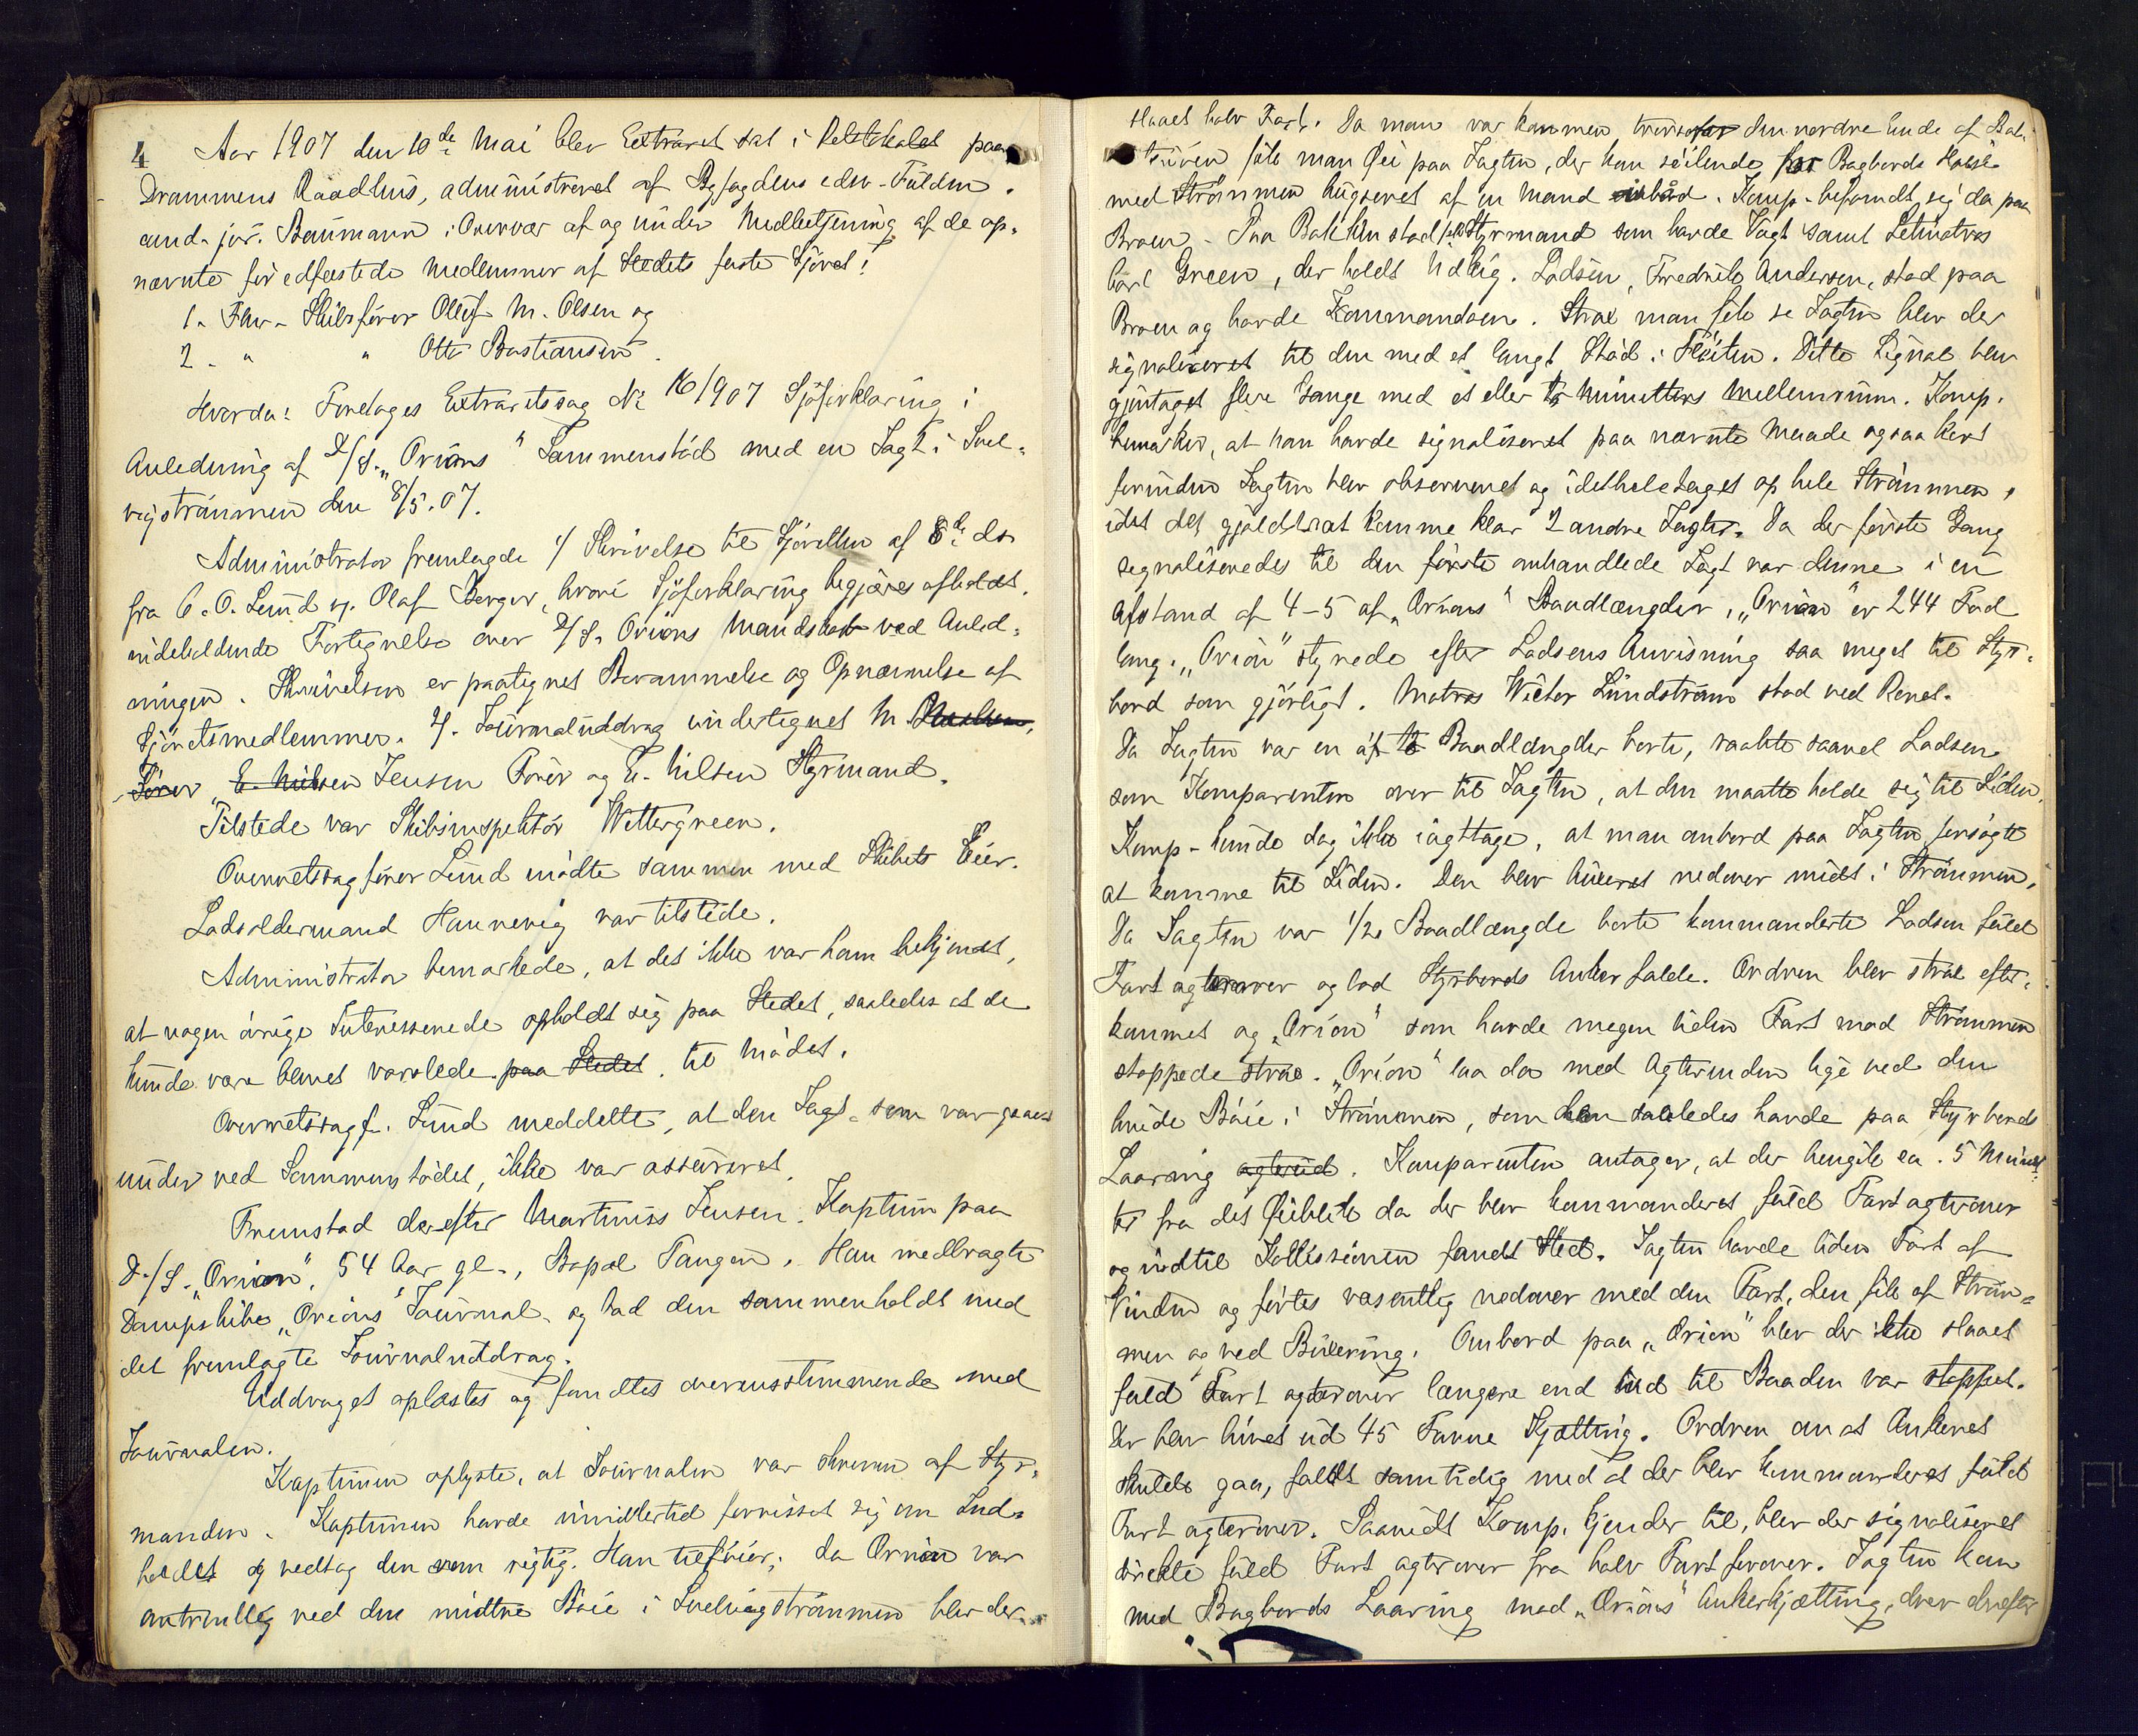 4
Aar 1907 den 10de Mai blev Extraret sat i Retslokalet paa
Drammens Raadhus, administreret af Byfogdens edsv. Fuldm.
cand. jur. Baumann i Overvær af og under Medbetjening af de op-
nævnte før edfæstede Medlemmer af Stedets faste Sjøret:
1. Fhv. Skibsfører Olluf M. Olsen og
2. " " Otto Bastiansen.
Hvorda: Foretages Extraretssag No 16/1907 Sjøforklaring i
Anledning af D/S. „Orions" Sammenstød med en Jagt i Svel-
vigstrømmen den 8/5.07.
Administrator fremlagde 1/ Skrivelse til Sjøretten af 8de ds
fra C. O. Lund og Olaf Berger, hvori Sjøforklaring begjæres afholdt,
indeholdende Fortegnelse over D/S. Orions Mandskab ved Anled-
ningen. Skrivelsen er paategnet Berammelse og Opnævnelse af
Sjøretsmedlemmer. 2/. Journaluddrag undertegnet M.
Fører, E. Nilsen Jensen Fører og E. Nilsen Styrmand.
Tilstede var Skibsinspektør Wettergreen.
Overretssagfører Lund mødte sammen med Skibets Eier.
Lodsoldermand Hannevig var tilstede.
Administrator bemærkede, at det ikke var ham bekjendt,
at nogen øvrige Interesserede opholdt sig paa Stedet, saaledes at de
kunde være blevet varslede paa Stedet. til Mødet.
Overretssagf. Lund meddelte, at den Jagt, som var gaaet
under ved Sammenstødet, ikke var assureret.
Fremstod derefter Martinius Jensen, Kaptein paa
D./S. „Orion", 54 Aar gl., Bopæl Tangen. Han medbragte
Dampskibet „Orions" Journal og bad den sammenholdt med
det fremlagte Journaluddrag.
Uddraget oplæstes og fandtes overensstemmende med
Journalen.
Kapteinen oplyste, at Journalen var skreven af Styr-
manden. Kapteinen havde imidlertid forvisset sig om Ind-
holdet og vedtog den som rigtig. Han tilføier: da Orion var
omtrentlig ved den midtre Bøie i Svelvigstrømmen blev der
slaaet halv Fart. Da man var kommen tversofor den nordre Ende af Bat-
teriven fik man Øie paa Jagten, der kom seilende for Bagbords Halse
med Strømmen bugseret af en Mand i båd. Komp. befandt sig da paa
Broen. Paa Bakken stod Styrmand som havde Vagt samt Letmatros
Carl Green, der holdt Udkig. Lodsen, Fredrik Andersen, stod paa
Broen og havde Kommandoen. Strax man fik se Jagten blev der
signaliseret til den med et langt Stød i Fløiten. Dette Signal blev
gjentaget flere Gange med et eller to Minutters Mellemrum. Komp.
bemærker, at han havde signaliseret paa nævnte Maade ogsaa kort
forinden Jagten blev observeret og i det hele taget op hele Strømmen,
idet det gjaldt at komme klar 2 andre Jagter. Da der første Gang
signaliseredes til den første omhandlede Jagt var denne i en
Afstand af 4-5 af „Orions" Baadlængder. „Orion" er 244 Fod
lang. „Orion" styrede efter Lodsens Anvisning saa meget til Styr-
bord som gjørligt. Matros Victor Lundstrøm stod ved Roret.
Da Jagten var en a to Baadlængder borte, raabte saavel Lodsen
som Komparenten over til Jagten, at den maatte holde sig til Siden.
Komp. kunde dog ikke iagttage, at man ombord paa Jagten forsøgte
at komme til Siden. Den blev buxeret nedover midt i Strømmen.
Da Jagten var 1/2 Baadlængde borte kommanderte Lodsen fuld
Fart agterover og lod Styrbords Anker falde. Ordren blev strax efter-
kommet og „Orion" som havde megen liden Fart mod Strømmen
stoppede strax. „Orion" laa da med Agterenden lige ved den
hvide Bøie i Strømmen, som den saaledes havde paa Styrbords
Laaring agterud. Komparenten antager, at der hengik ca. 5 Minut-
ter fra det Øieblik da der blev kommanderet fuld Fart agterover
og indtil Kollissionen fandt Sted. Jagten havde liden Fart af
Vinden og førtes væsentlig nedover med den Fart, den fik af Strøm-
men og ved Buxering. Ombord paa „Orion" blev der ikke slaaet
fuld Fart agterover længere end ind til Baaden var stoppet.
Der blev hivet ud 45 Favne Kjætting. Ordren om at Ankeret
skulde gaa, faldt samtidig med at der blev kommanderet fuld
Fart agterover. Saavidt Komp. kjender til, blev der signaliseret
direkte fuld Fart agterover fra halv Fart forover. Jagten kom
med Bagbords Laaring mod „Orions" Ankerkjætting, drev derefter